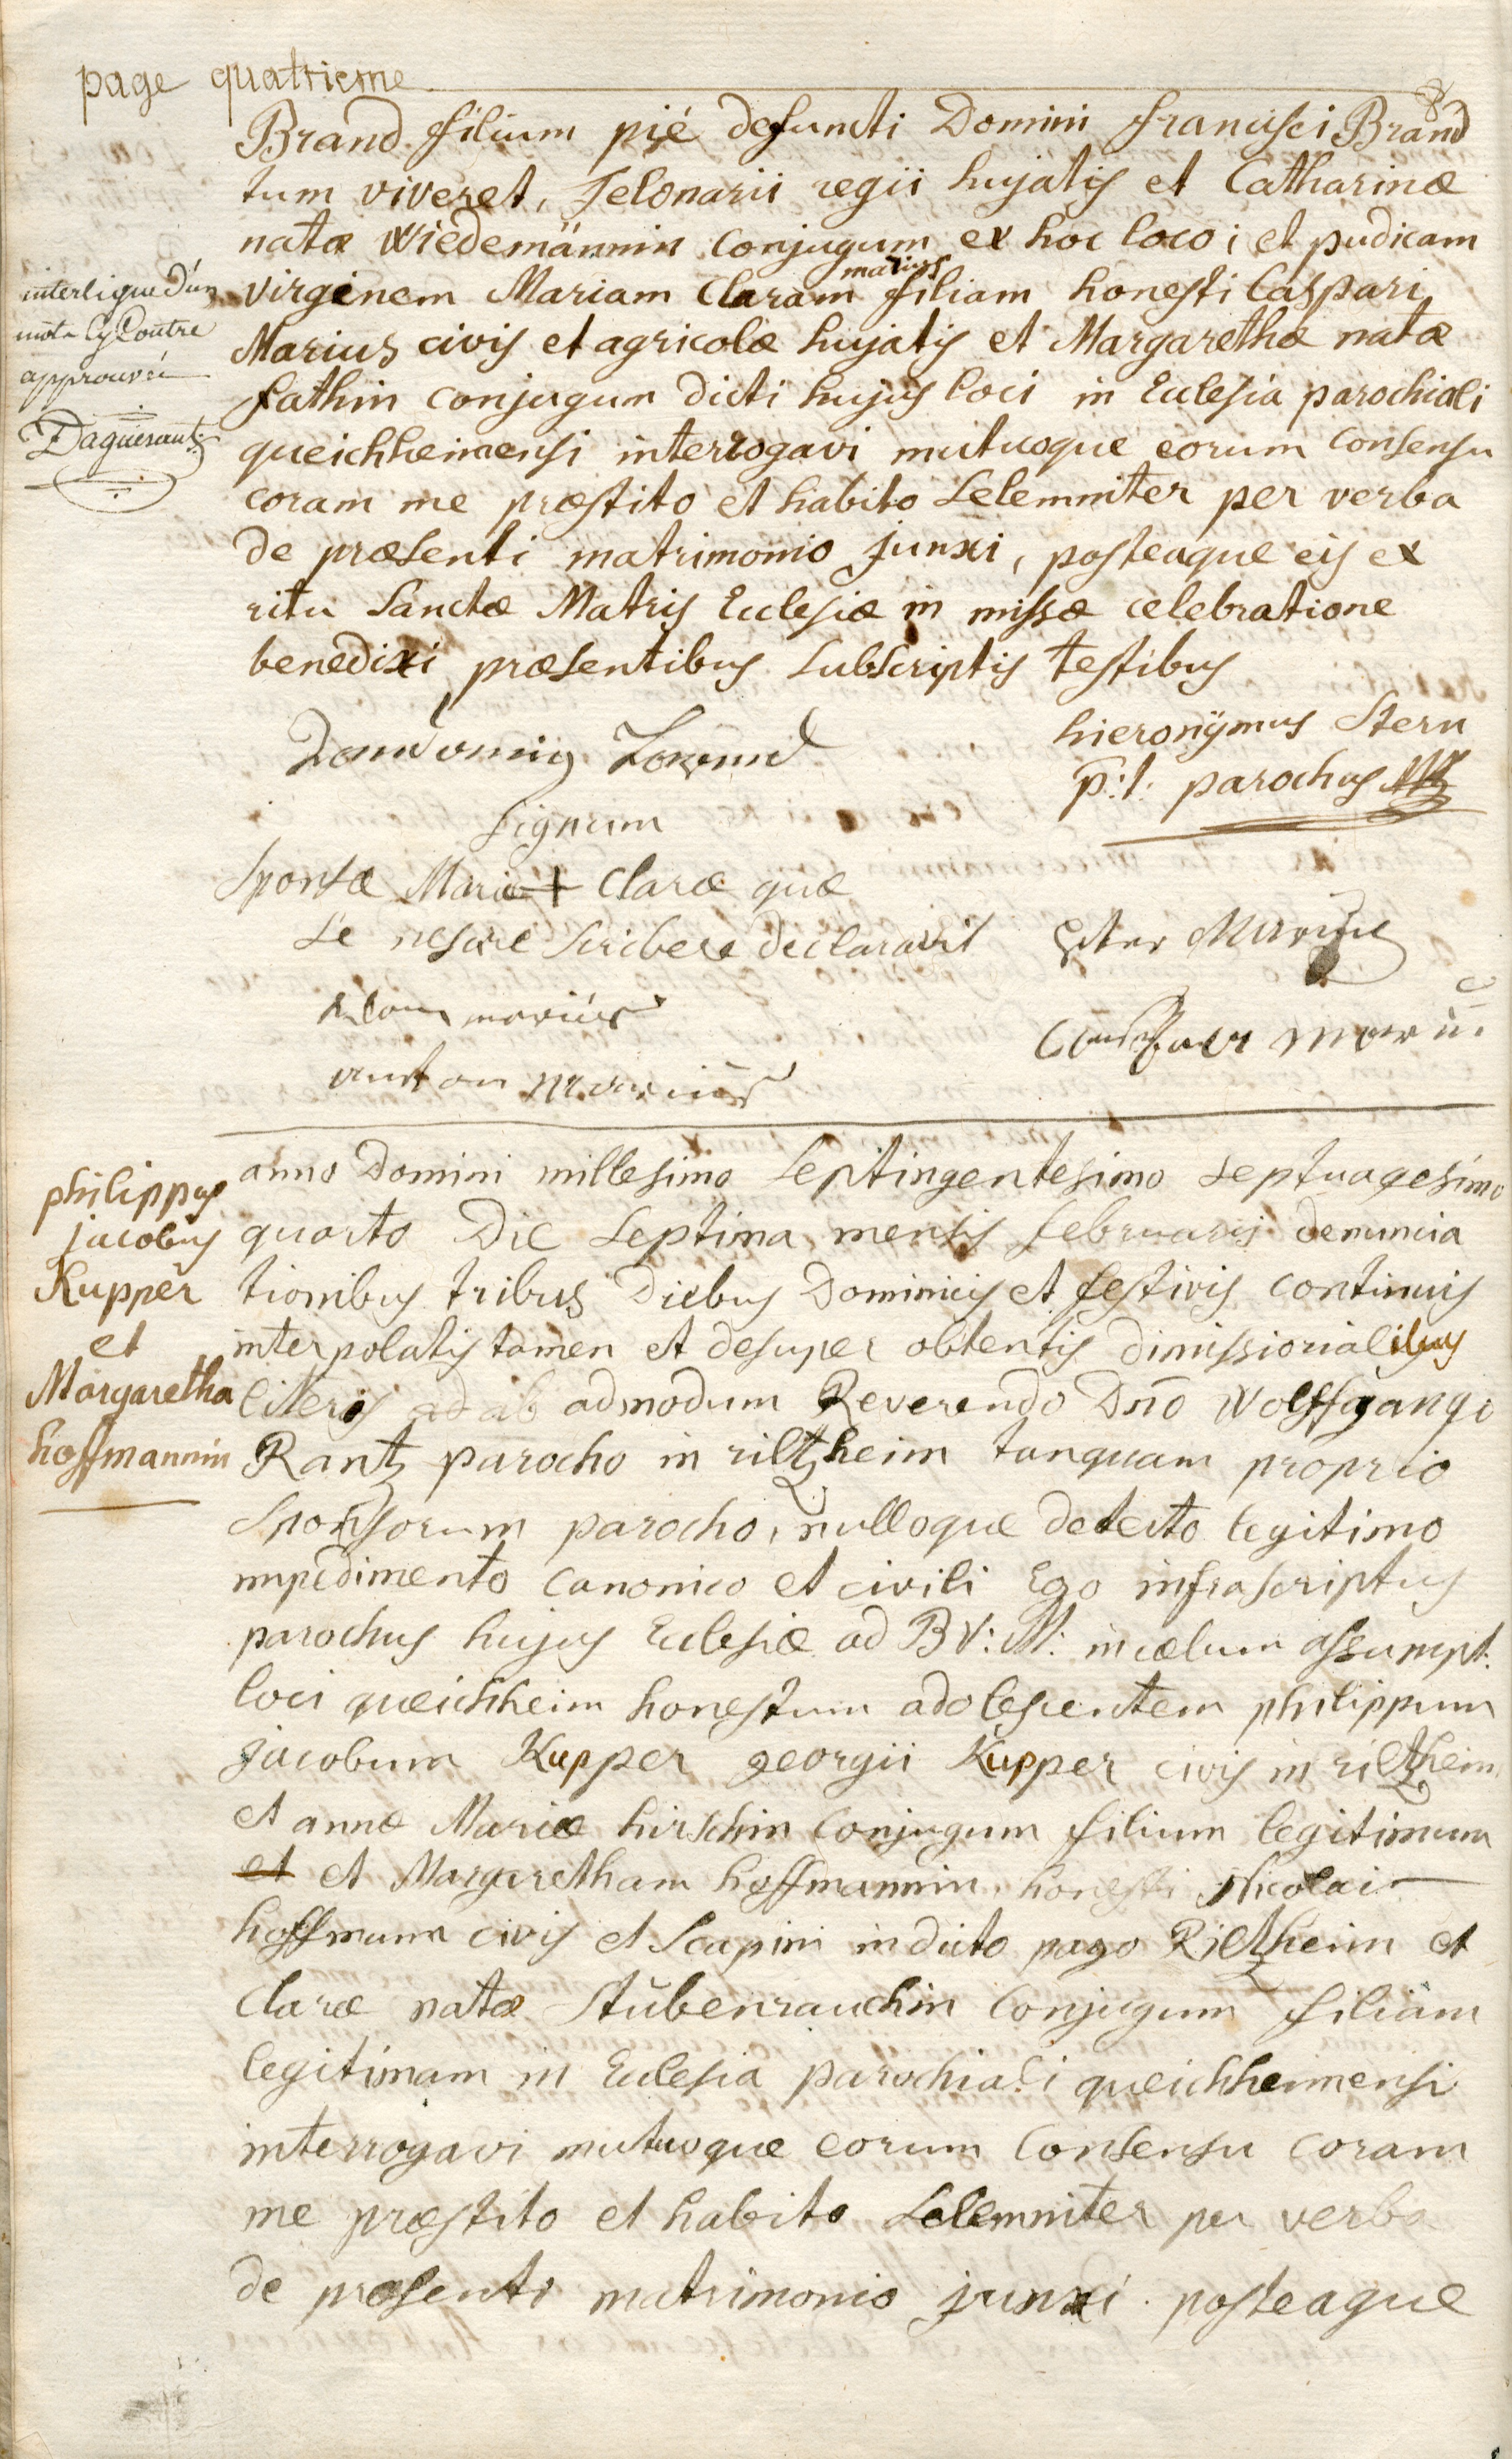 page quatrieme
Brand filium pié defuncti Domini francisci Brand
tum viveret, Telonarii regii hujatis et Catharinæ
natæ Wiedemännin Conjugum ex hoc loco; et pudicam
marius
virginem Mariam Claram filiam honesti Caspari
Marius civis et agricolæ hujatis et Margarethæ natæ
fathin Conjugum dicti hujus loci in Ecclesia parochiali
queichheimensi interrogavi mutuoque eorum Consensu
coram me præstito et habito Solemniter per verba
de præsenti matrimonio junxi, posteaque eis ex
ritu Sanctæ Matris Ecclesiæ in missæ celebratione
benedixi præsentibus Subscriptis testibus
interligne d'un
mot cy Contre
approuvé
Daguesaut
hieronÿmus Stern
p:t: parochus
Signum
Sponsæ Mariæ + Claræ quæ
Se nescire Scribere declaravit
Peter Marius
Adam mariüs
anton mariüs
anno Domini millesimo Septingentesimo Septuagesimo
quarto Die Septima mensis februarij denuncia
tionibus tribus Diebus Dominicis et festivis continuis
interpolatis tamen et desuper obtentis dimissorialibus
literis ad ab admodum Reverendo Dno Wolffgango
Rantz parocho in riltzheim tanquam proprio
Sponsorum parocho, nulloque detecto legitimo
impedimento canonico et civili Ego infrascriptus
parochus hujus Ecclesiæ ad B V: M: in cælum assumpt:
loci queichheim honestum adolescentem philippum
jacobum Kupper georgii Kupper civis in riltzheim
et annæ Mariæ hirschin Conjugum filium legitimum
et et Margaretham hoffmannin, honesti Nicolai
hoffmann civis et Scapini in dicto pago Riltzheim et
Claræ natæ Stŭbenrauchin Conjugum filiam
legitimam in Ecclesia parochiali queichheimensi
interrogavi mutuoque eorum Consensu coram
me præstito et habito Solemniter per verba
de præsenti matrimonio junxi posteaque
philippus
jacobus
Kupper
et
Margaretha
hoffmannin